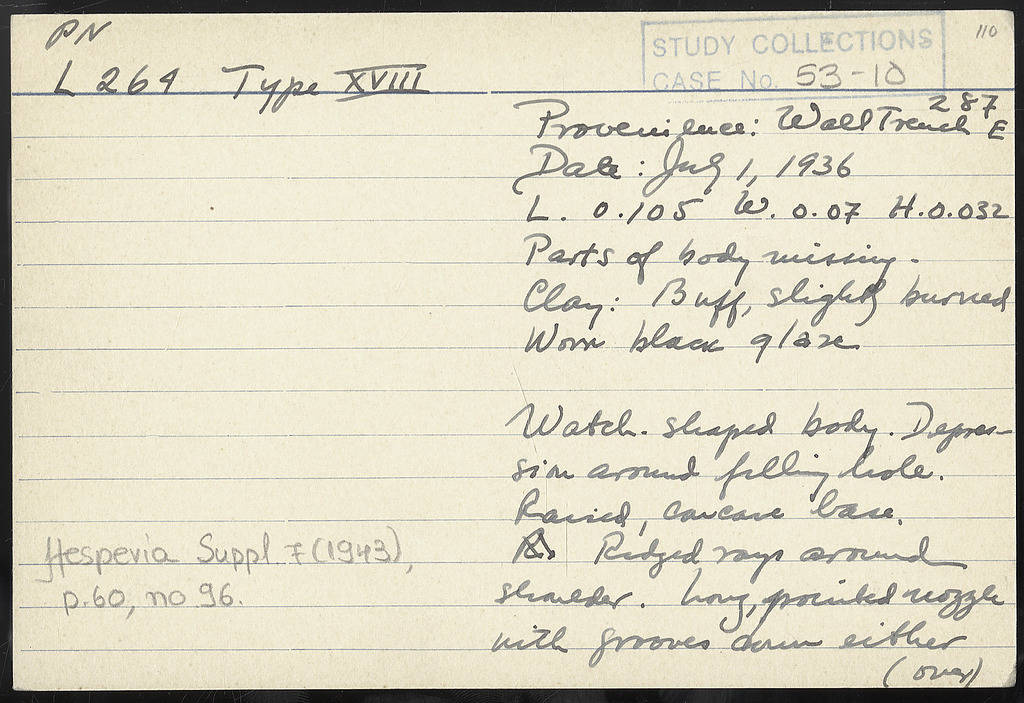 PN
110
STUDY COLLECTIONS
CASE No. 53-10
L 264 Type XVIII
287
Provenience: Wall Trench E
Date: July 1, 1936
L. 0.105 W. 0.07 H. 0.032
Parts of body missing.
Clay: Buff, slightly burned
Worn black glaze
Watch-shaped body. Depres-
sion around filling hole.
Raised, concave base.
Ridged rays around
shoulder. Long, pointed nozzle
with grooves down either
(over)
Hesperia Suppl 7 (1943),
p. 60, no 96.